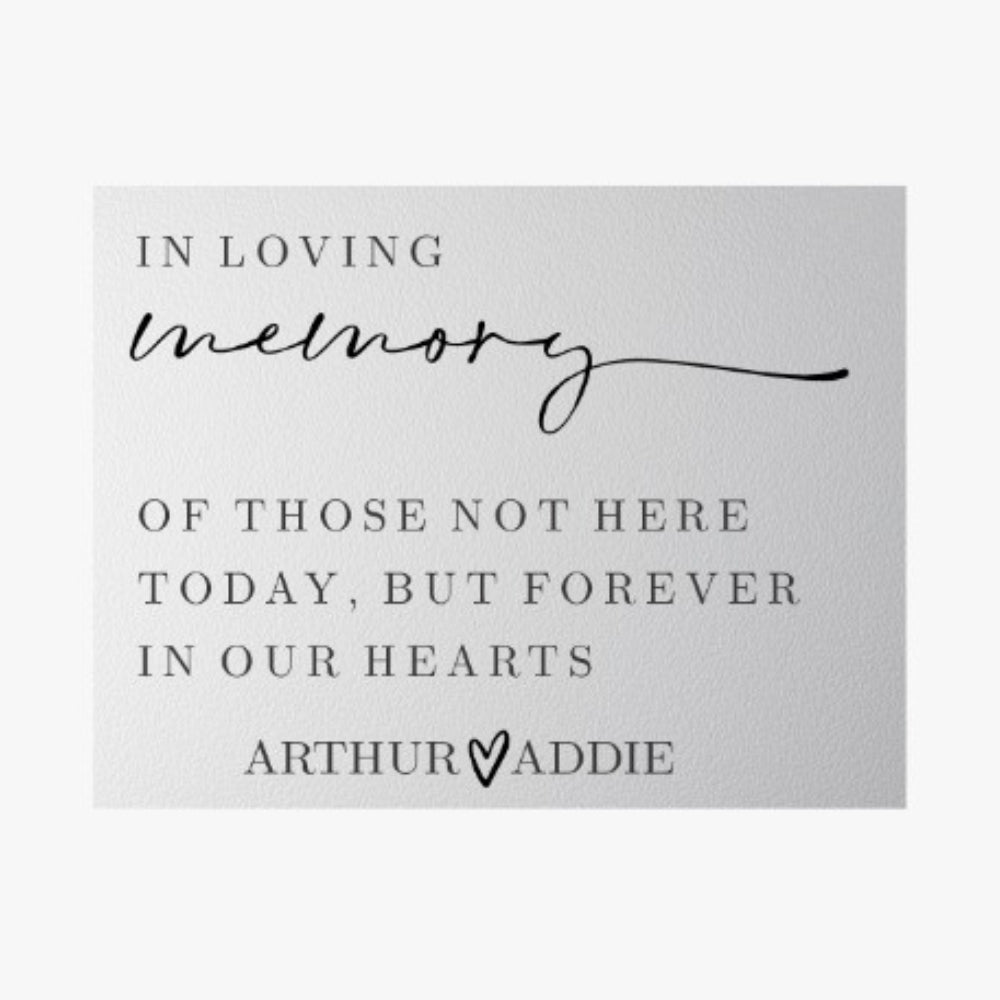 IN LOVING
memory
OF THOSE NOT HERE
TODAY, BUT FOREVER
IN OUR HEARTS
ARTHUR♡ADDIE